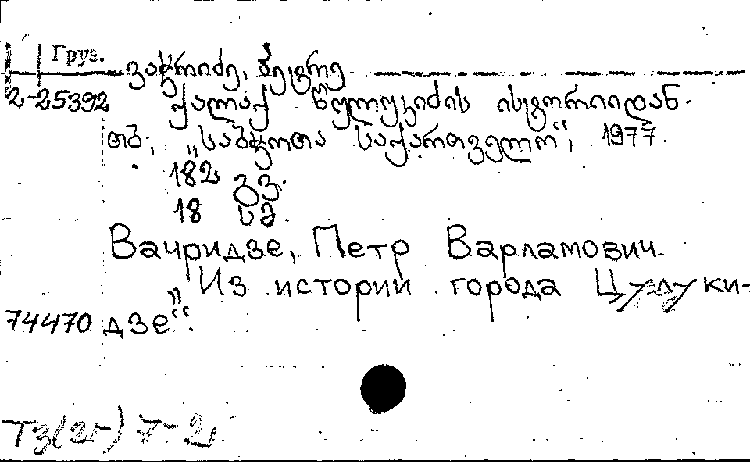 Груз.
ვაჭრიძე, პეტრე
2-25392 ქალაქ წულუკიძის ისტორიიდან.
თბ., „საბჭოთა საქართველო“, 1977.
182 გვ.
18 სმ
Вачридзе, Петр Варламович.
„Из истории города Цулуки-
74470 дзе“.